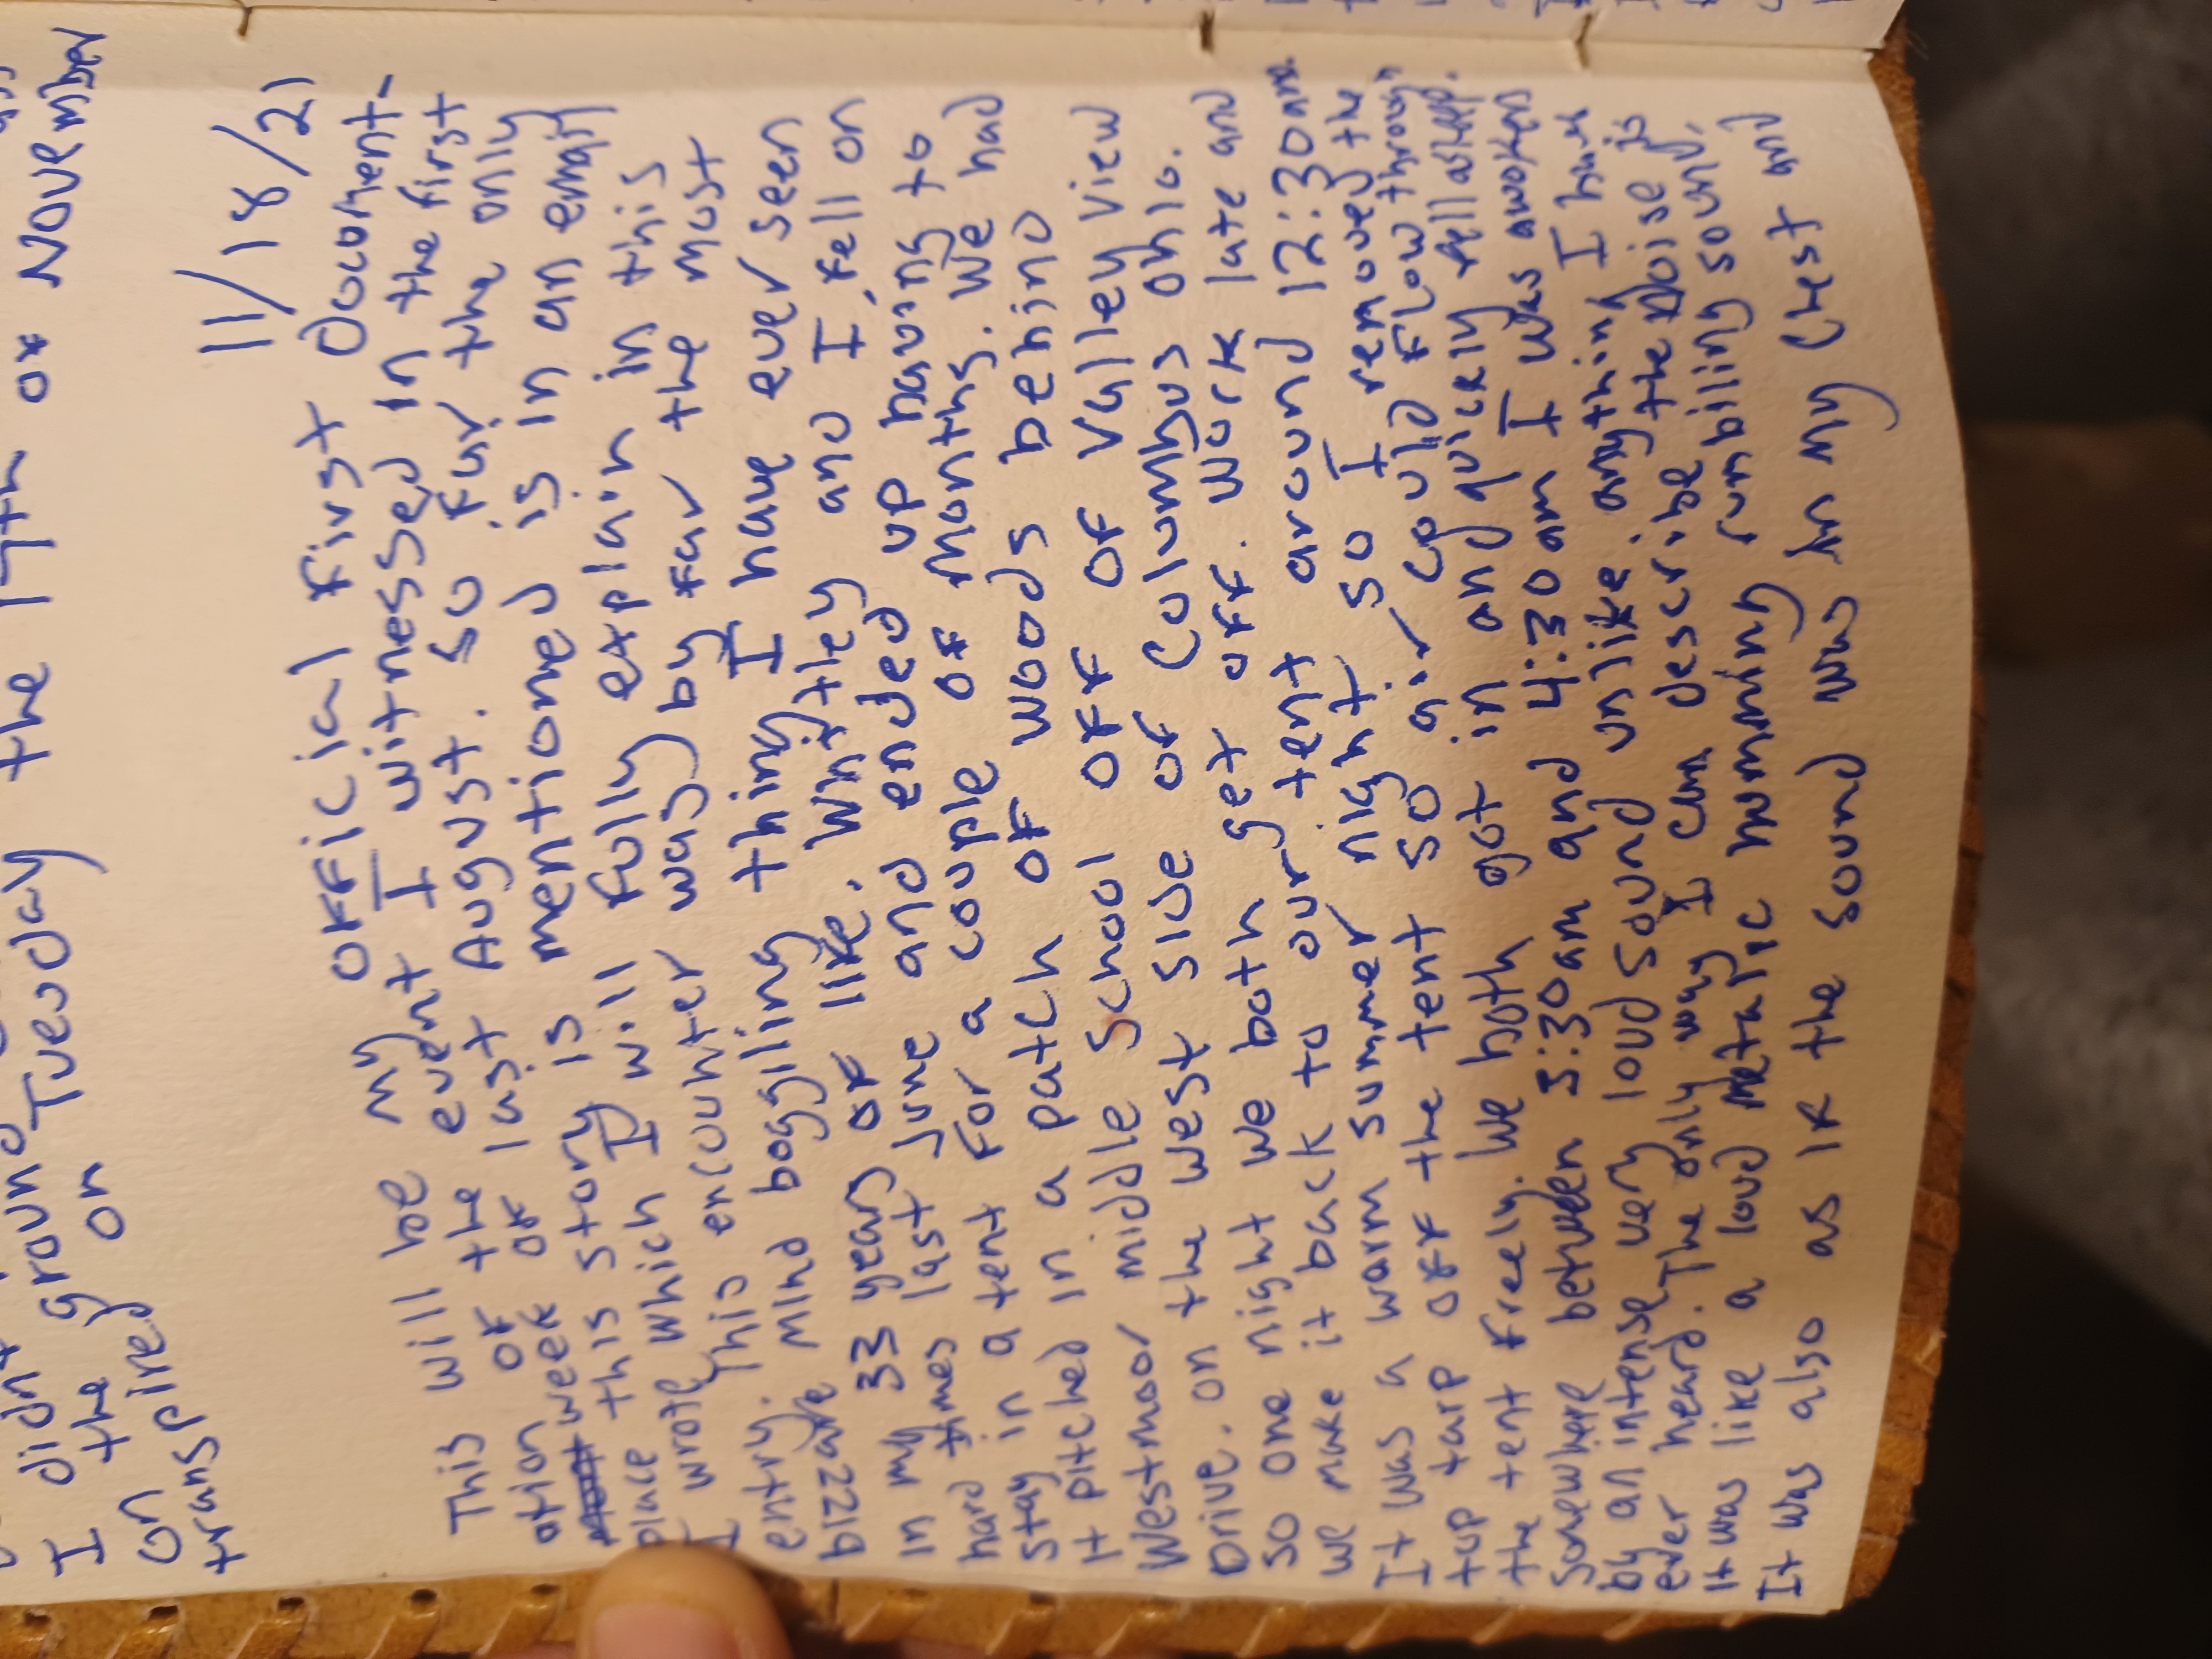 I didnt
on the ground
transpired on Tuesday the 17th of November
11/18/21
This will be my official first Document-
ation of the event I witnessed in the first
week of last August. So far the only
place this story is mentioned is in an email
I wrote which I will fully explain in this
entry. This encounter was by far the most
bizzare mind boggiling thing I have ever seen
in my 33 years of life. Whitley and I fell on
hard times last June and ended up having to
stay in a tent for a couple of months. We had
it pitched in a patch of woods behind
Westmoor middle school off of Valleyview
Drive. on the west side of Columbus ohio.
so one night we both get off. work late and
we make it back to our tent around 12:30am.
It was a warm summer night so I removed the
top tarp off the tent so air could flow through
the tent freely. We both got in and quickly fell asleep.
Somewhere between 3:30am and 4:30am I was awoken
by an intense very loud sound unlike anything I have
ever heard. The only way I can describe the noise is
it was like a loud metalic humming rumbiling sound,
It was also as if the sound was in my Chest and